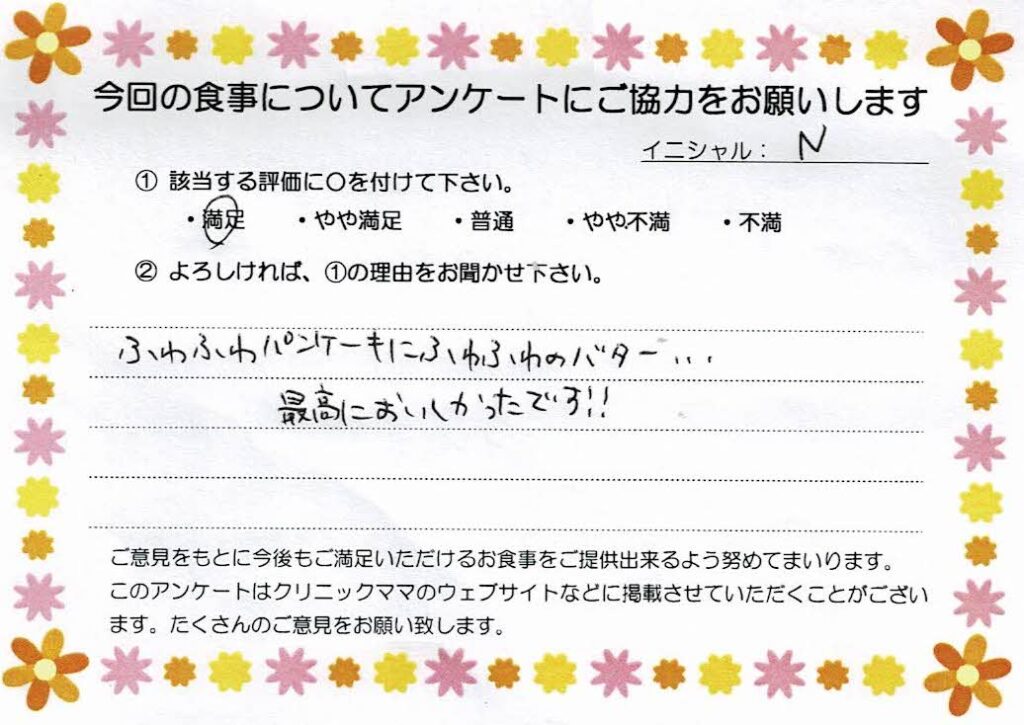 今回の食事についてアンケートにご協力をお願いします
イニシャル： N
① 該当する評価に〇を付けて下さい。
・満足 ・やや満足 ・普通 ・やや不満 ・不満
② よろしければ、①の理由をお聞かせ下さい。
ふわふわパンケーキにふわふわのバター...
最高においしかったです!!
ご意見をもとに今後もご満足いただけるお食事をご提供出来るよう努めてまいります。
このアンケートはクリニックママのウェブサイトなどに掲載させていただくことがござい
ます。たくさんのご意見をお願い致します。